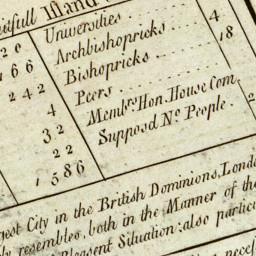 Island
Universities
20 Archbishopricks 4
166 Bishopricks 18
242 Peers
4 Membrs Hon. House Com.
32 Suppos'd No. People. 2
22
1586
gest City in the British Dominions, Lond
resembles, both in the Manner of the
Pleasent Situation; also particu